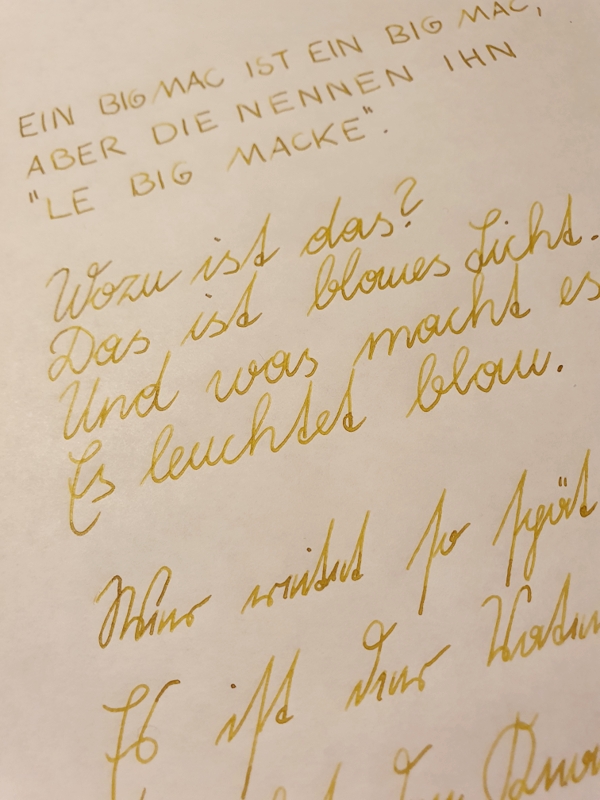 EIN BIG MAC IST EIN BIG MAC,
ABER DIE NENNEN IHN
"LE BIG MACKE".
Wozu ist das?
Das ist blaues Licht.
Und was macht es
Es leuchtet blau.
Wer reitet so spät
Es ist der Vater
den